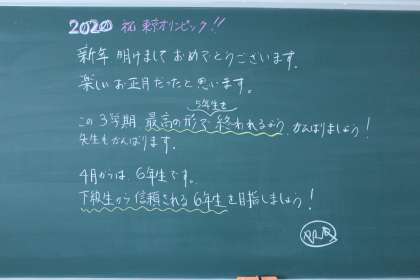 2020 祝 東京オリンピック!!
新年 明けまして おめでとうございます。
楽しいお正月だったと思います。
5年生を
この3学期 最高の形で終われるよう がんばりましょう!
先生もがんばります。
4月からは、6年生です。
下級生から信頼される6年生を目指しましょう!